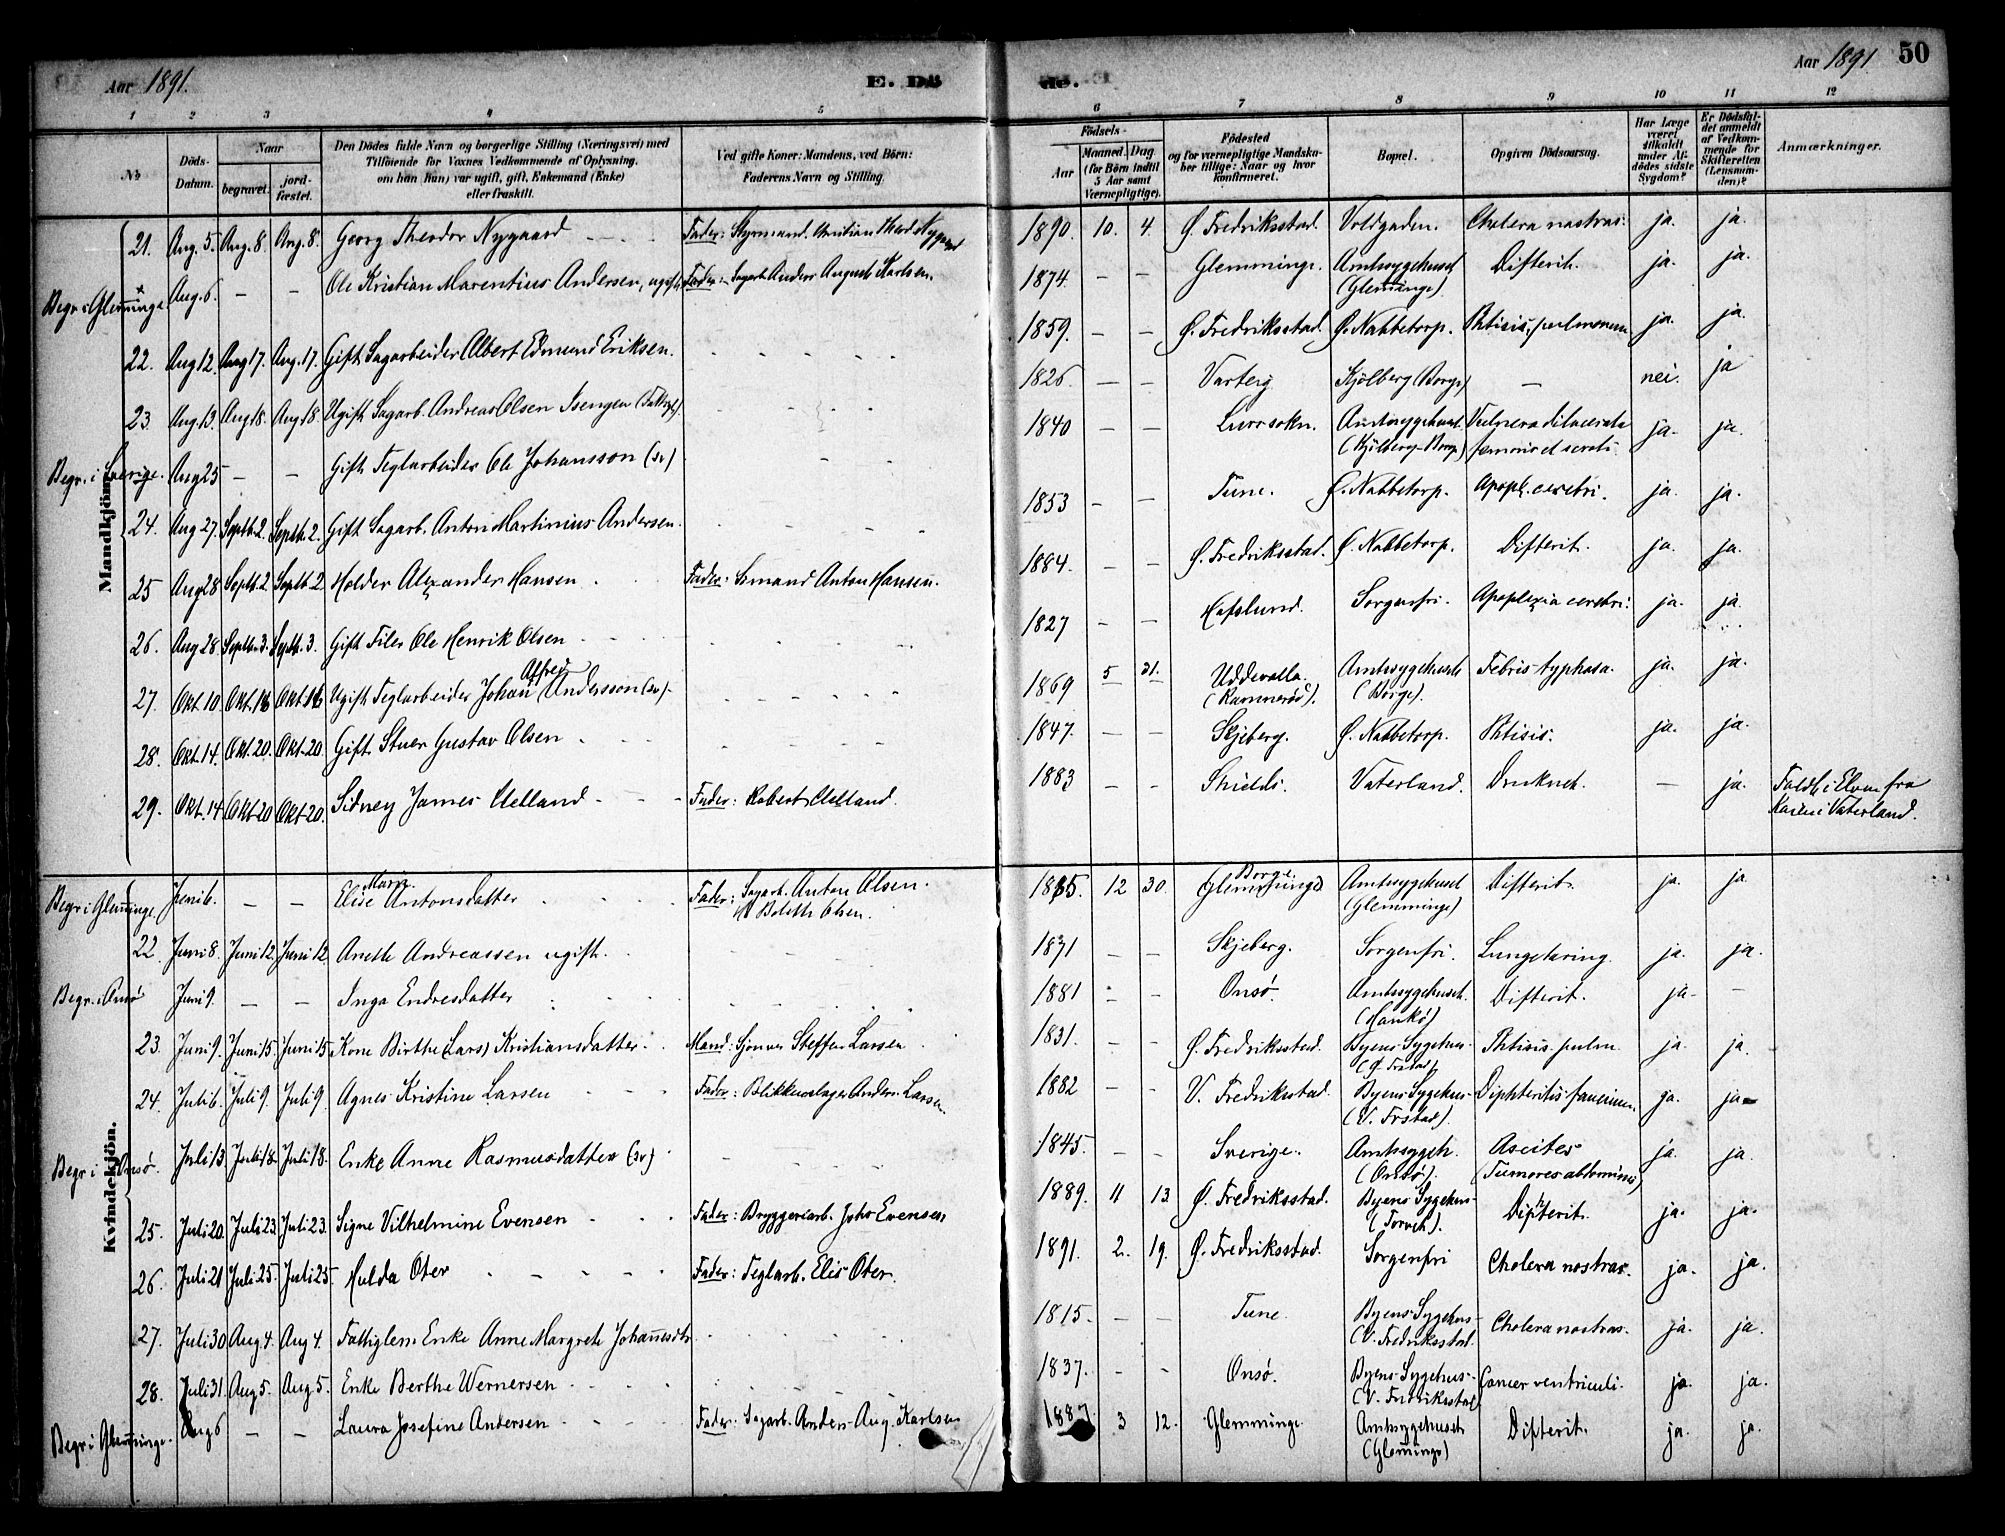 Aar 1891. E. Dö de. Aar 1891 50
1 2 3 4 5 6 7 8 9 10 11 12
No
Döds-Datum.
Naar
begravet.
jord-fæstet.
Den Dödes fulde Navn og borgerlige Stilling (Næringsvei) med
Tilföiende för Voxnes Vedkommende af Oplysning,
om han (hun) var ugift, gift, Enkemand (Enke)
eller fraskilt.
Ved gifte Koner: Mandens, ved Börn:
Faderens Navn og Stilling.
Födsels-
Aar
Maaned. Dag
(for Börn indtil
5 Aar samt
Værnepligtige).
Födested
og for værnepligtige Mandska-
ber tillige: Naar og hvor
konfirmeret.
Bopæl.
Opgiven Dödsaarsag.
Har Læge
været
tilkaldt
under Af-
dödes sidste
Sygdom?
Er Dödsfal-
det anmeldt
af Vedkom-
mende for
Skifteretten
(Lensman-
den)?
Anmærkninger.
Mandkjön.
21. Aug. 5. Aug. 8 Aug. 8. Georg Theodor Nygaard Fader: Styrmand Christian Theod. Nygaard 1890. 10. 4. Ø. Fredriksstad. Voldgaden. Cholera nostras. ja. ja.
Begr. i Glemminge. Aug. 6. — — Ole Kristian Marentius Andersen, ugift Fader: Sagarb. Anders August Karlsen. 1874. — — Glemminge. Amtssygehuset (Glemminge) Difterit. ja. ja.
22. Aug 12. Aug 17. Aug. 17. Gift Sagarbeider Albert Edmund Eriksen. 1859. — — Ø. Fredriksstad. Ø. Nabbetorp. Phtisis pulmonum ja. ja.
23. Aug. 13. Aug 18. Aug 18. Ugift Sagarb. Andreas Olsen 1826. — — Varteig Kjölberg (Borge) — nei. ja
Begr. i Sverige. Aug 25 — — Gift Teglarbeider Ole Johansson (sv) 1840 — — Lurs sokn. Amtssygehuset (Kjölberg-Borge) Vulnera dilacerata femoris et scroti. ja. ja.
24. Aug 27. Septb. 2. Septb. 2. Gift Sagarb. Anton Martinius Andersen. 1853 — — Tune. Ø. Nabbetorp. Apopl. cerebri. ja. ja.
25 Aug 28 Septb. 2 Septb 2 Holder Alexander Hansen Fader: Sömand Anton Hansen. 1884. — — Ø. Fredriksstad. Ø. Nabbetorp. Difterit. ja. ja.
26. Aug 28. Septb. 3. Septb. 3. Gift Filer Ole Henrik Olsen 1827 — — Hafslund. Sorgenfri. Apoplexia cerebri. ja. ja
27. Okt 10 Okt. 16 Okt 16 Ugift Teglarbeider Johan Alfred Andersson (sv) 1869 5 31. Uddevalla. Amtssygehuset (Borge). Febris typhosa. ja. ja.
28. Okt. 14. Okt. 20. Okt. 20 Gift Stuer Gustav Olsen 1847. — — Skjeberg. Ø. Nabbetorp. Phtisis. ja. ja.
29. Okt. 14 Okt 20 Okt. 20. Sidney James Clelland Fader: Robert Clelland. 1883 Shields. Vaterland. Druknet. — ja. Faldt i Elven fra Kaien i Vaterland.
Kvindekjön.
Begr. i Glemminge Juni 6. — — Elise Marie Antonsdatter Fader: Sagarb. Anton Olsen. Boleth Olsen. 1885. 12 30. Glemminge Borge. Amtssygehuset (Glemminge) Difterit. ja. ja
22. Juni 8. Juni 12. Juni 12. Anette Andreassen ugift. 1871 — — Skjeberg. Sorgenfri. Lungetæring. ja. ja.
Begr. i Onsö Juni 9. — — Inga Endresdatter 1881 — — Onsö. Amtssygehuset. (Hankö) Difterit. ja. —
23. Juni 9. Juni 15. Juni 15. Kone Birthe (Lars) Kristiansdatter. Mand: Steffen Larsen 1831. — — Ø. Fredriksstad. Byens Sygehus (Ø. Frstad). Phtisis pulm. ja. ja.
24. Juli 6. Juli 9. Juli 9. Agnes Kristine Larsen Fader: Blikkenslager Anders Larsen. 1882 — — V. Fredriksstad. Byens Sygehus (V. Frstad). Diphteritis faucium. ja. ja
Begr. i Onsö. Juli 13 Juli 18. Juli 18. Enke Anne Rasmusdatter (sv) 1845. — — Sverige. Amtssygeh. (Onsö). Ascites (Tumores abdominis) ja. ja.
25. Juli 20. Juli 23. Juli 23. Signe Vilhelmine Evensen Fader: Bryggeriarb. Johs Evensen 1889. 11 13. Ø. Fredriksstad. Byens Sygehus (Torvet). Difterit. ja. ja.
26. Juli 21 Juli 25. Juli 25. Hulda Oter Fader: Teglarb. Elis Oter. 1891. 2. 19. Ø. Fredriksstad. Sorgenfri Cholera nostras. ja. ja.
27. Juli 30 Aug 4. Aug 4. Fattiglem Enke Anne Margrete Johannesdtr. 1815. — — Tune. Byens Sygehus (V. Fredriksstad. Cholera nostras. ja. ja.
28. Juli 31. Aug 5. Aug 5. Enke Berthe Wernersen 1837. — — Onsö. Byens Sygehus (V. Fredriksstad) Cancer ventriculi. ja. ja.
Begr. i Glemminge. Aug 6 — — Laura Josefine Andersen Fader: Sagarb. Anders Aug. Karlsen 1887. 3 12. Glemminge Amtssygehuset (Glemminge) Difterit. ja. ja.